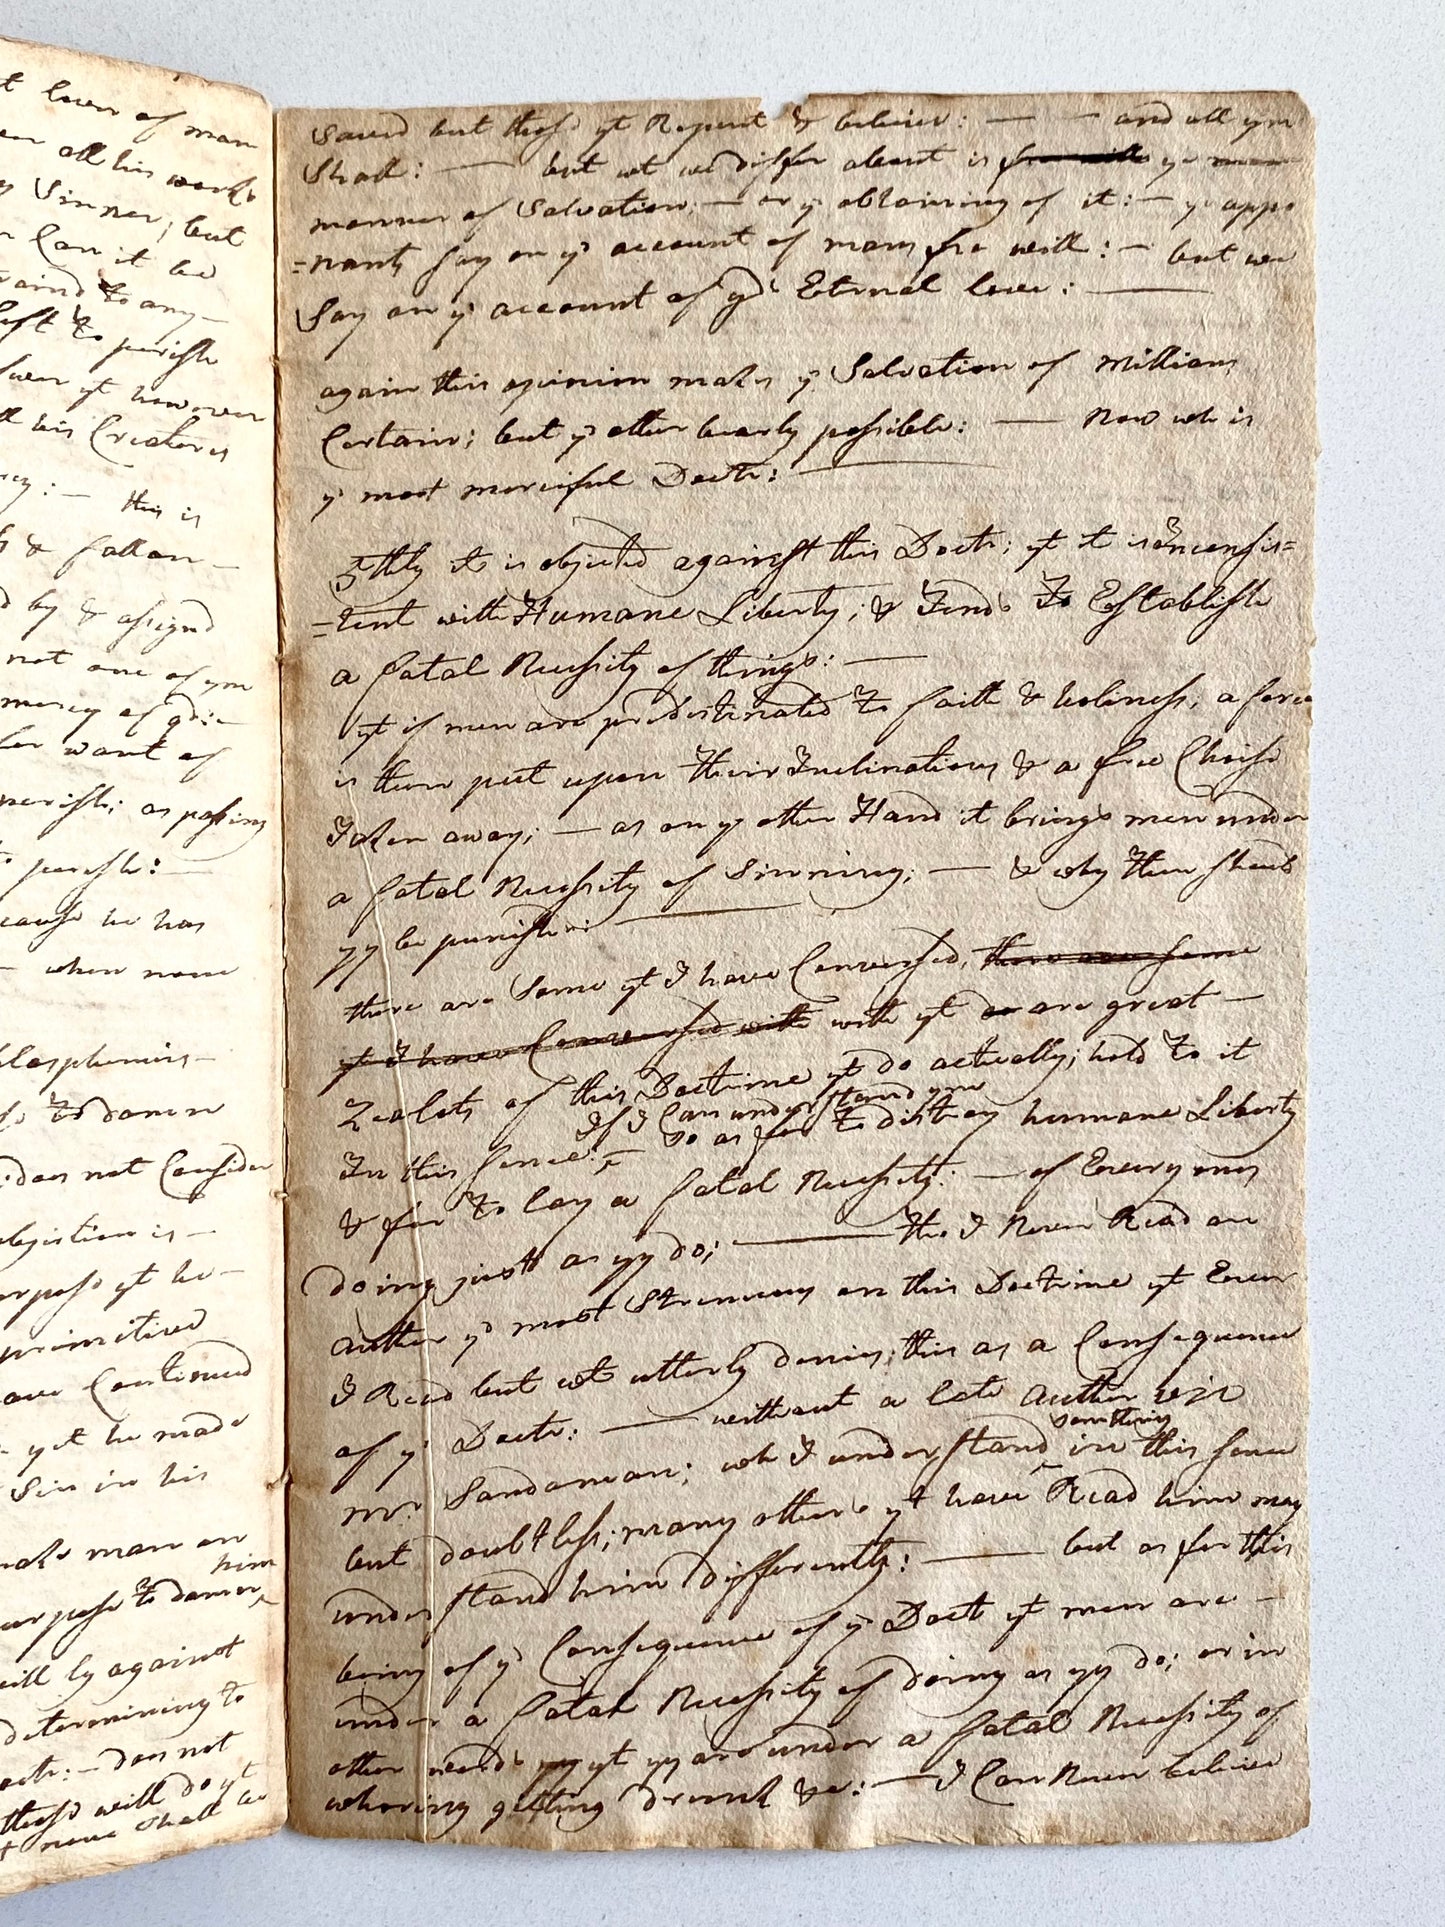 t love of man
all his works
Sinner; but
Can it be
to any—
left to perish
yt however
his Creatures
:— this is
& fallen—
by & assignd
not one of ym
mercy of gd:—
for want of
perish; as passing
perish:—
cause he has
— when none
blasphemies—
to damn
does not Consider
objection is—
purpose yt he—
primitive
have Continued
yet he made
Sin in his
make man on
him
purpose to damn
will ly against
determining to
doct:— does not
these will do yt
none shall
Saved but those yt Repent & believe: — — and all ym
Shall: — but wt we differ about is free will ye mann
manner of Salvation; — or ye obtaining of it: — ye oppo
=nants say on ye account of mans fre will: — but we
Say on ye account of gds Eternal love: —
again this opinion makes ye Salvation of Millians
Certain; but ye other bearly possible: — Now wh is
ye most merciful Doctr: —
5thly it is objected against this Doctr; yt it is Inconsis=
=tent with Humane Liberty; & Tends To Establish
a fatal Necessity of things: —
yt if men are predestinated to faith & holiness, a force
is then put upon Their Inclinations & a free Choise
Taken away; — as on ye other Hand it brings men under
a fatal Necessity of Sinning; — & why Then should
yy be punished: —
there are Some yt I have Conversed, there are some
yt I have Conversed with with yt are are great —
Zealots of this Doctrine yt do actually; hold to it
If I Can understand ym
In this sence: — so as for to distroy humane Liberty
& for to lay a fatal Necessity: — of Every ones
doing just as yy do; — tho I Never Read an
auther ye most Strenuous on this Doctrine yt Ever
I Read but wt utterly denies; this as a Consequence
of ye Doctr: — without a late auther viz
something
mr Sandaman; wh I understand in this sence
but doubtless; many others yt have Read him may
understand him differently: — but as for this
being of ye Consequence of ye Doct yt men are —
under a fatal Necessity of doing as yy do; or in
other words yt yy are under a fatal Necessity of
whoring getting drunk &c: — I Can Never believe